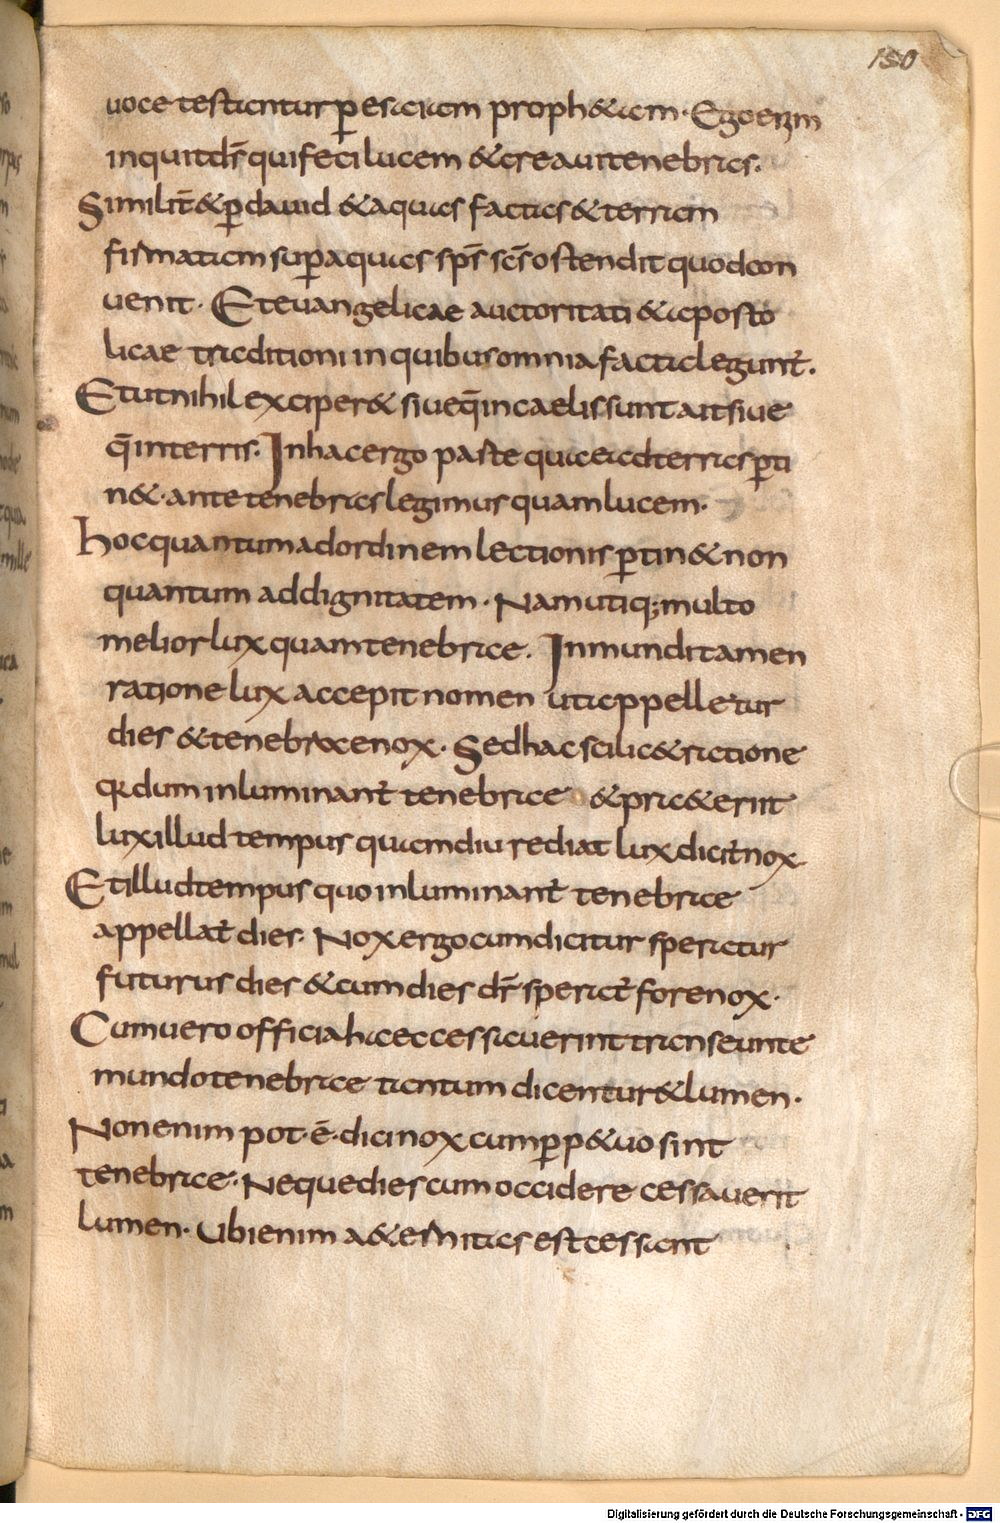 150
uoce testantur p̲ esaiam proph&am· Ego enim
inquit d̄s qui feci lucem & creaui tenebras.
Similit̄ & p̲ dauid & aquas factas & terram
firmatam sup̲ aquas sp̄s sc̄s ostendit quod con
uenit· Et euangelicae auctoritati & aposto
licae traditioni in quibus omnia facta legunt̄.
Et ut nihil exciper& siue q̄ in caelis sunt aut siue
q̄ in terris. In hac ergo parte quae ad terras p̲ti
n& · ante tenebras legimus quam lucem·
hoc quantum ad ordinem lectionis p̲tin& non
quantum ad dignitatem · Nam utiq; multo
melior lux quam tenebrae. In mundi tamen
ratione lux accepit nomen ut appelletur
dies & tenebrae nox· Sed hac scilic& ratione
q̄ dum inluminant̄ tenebrae & pra&erit
lux illud tempus quamdiu rediat lux dicit̄ nox
Et illud tempus quo inluminant̄ tenebrae
appellat̄ dies· Nox ergo cum dicitur speratur
futurus dies & cum dies d̄r sperat̄ fore nox·
Cum uero officia haec cessauerint transeunte
mundo tenebrae tantum dicentur & lumen·
Non enim pot· ē· dici nox cum p̲p&uo sint
tenebrae· Neque dies cum occidere cessauerit
lumen· Ubi enim a&ernitas est cessant
Digitalisierung gefördert durch die Deutsche Forschungsgemeinschaft - DFG